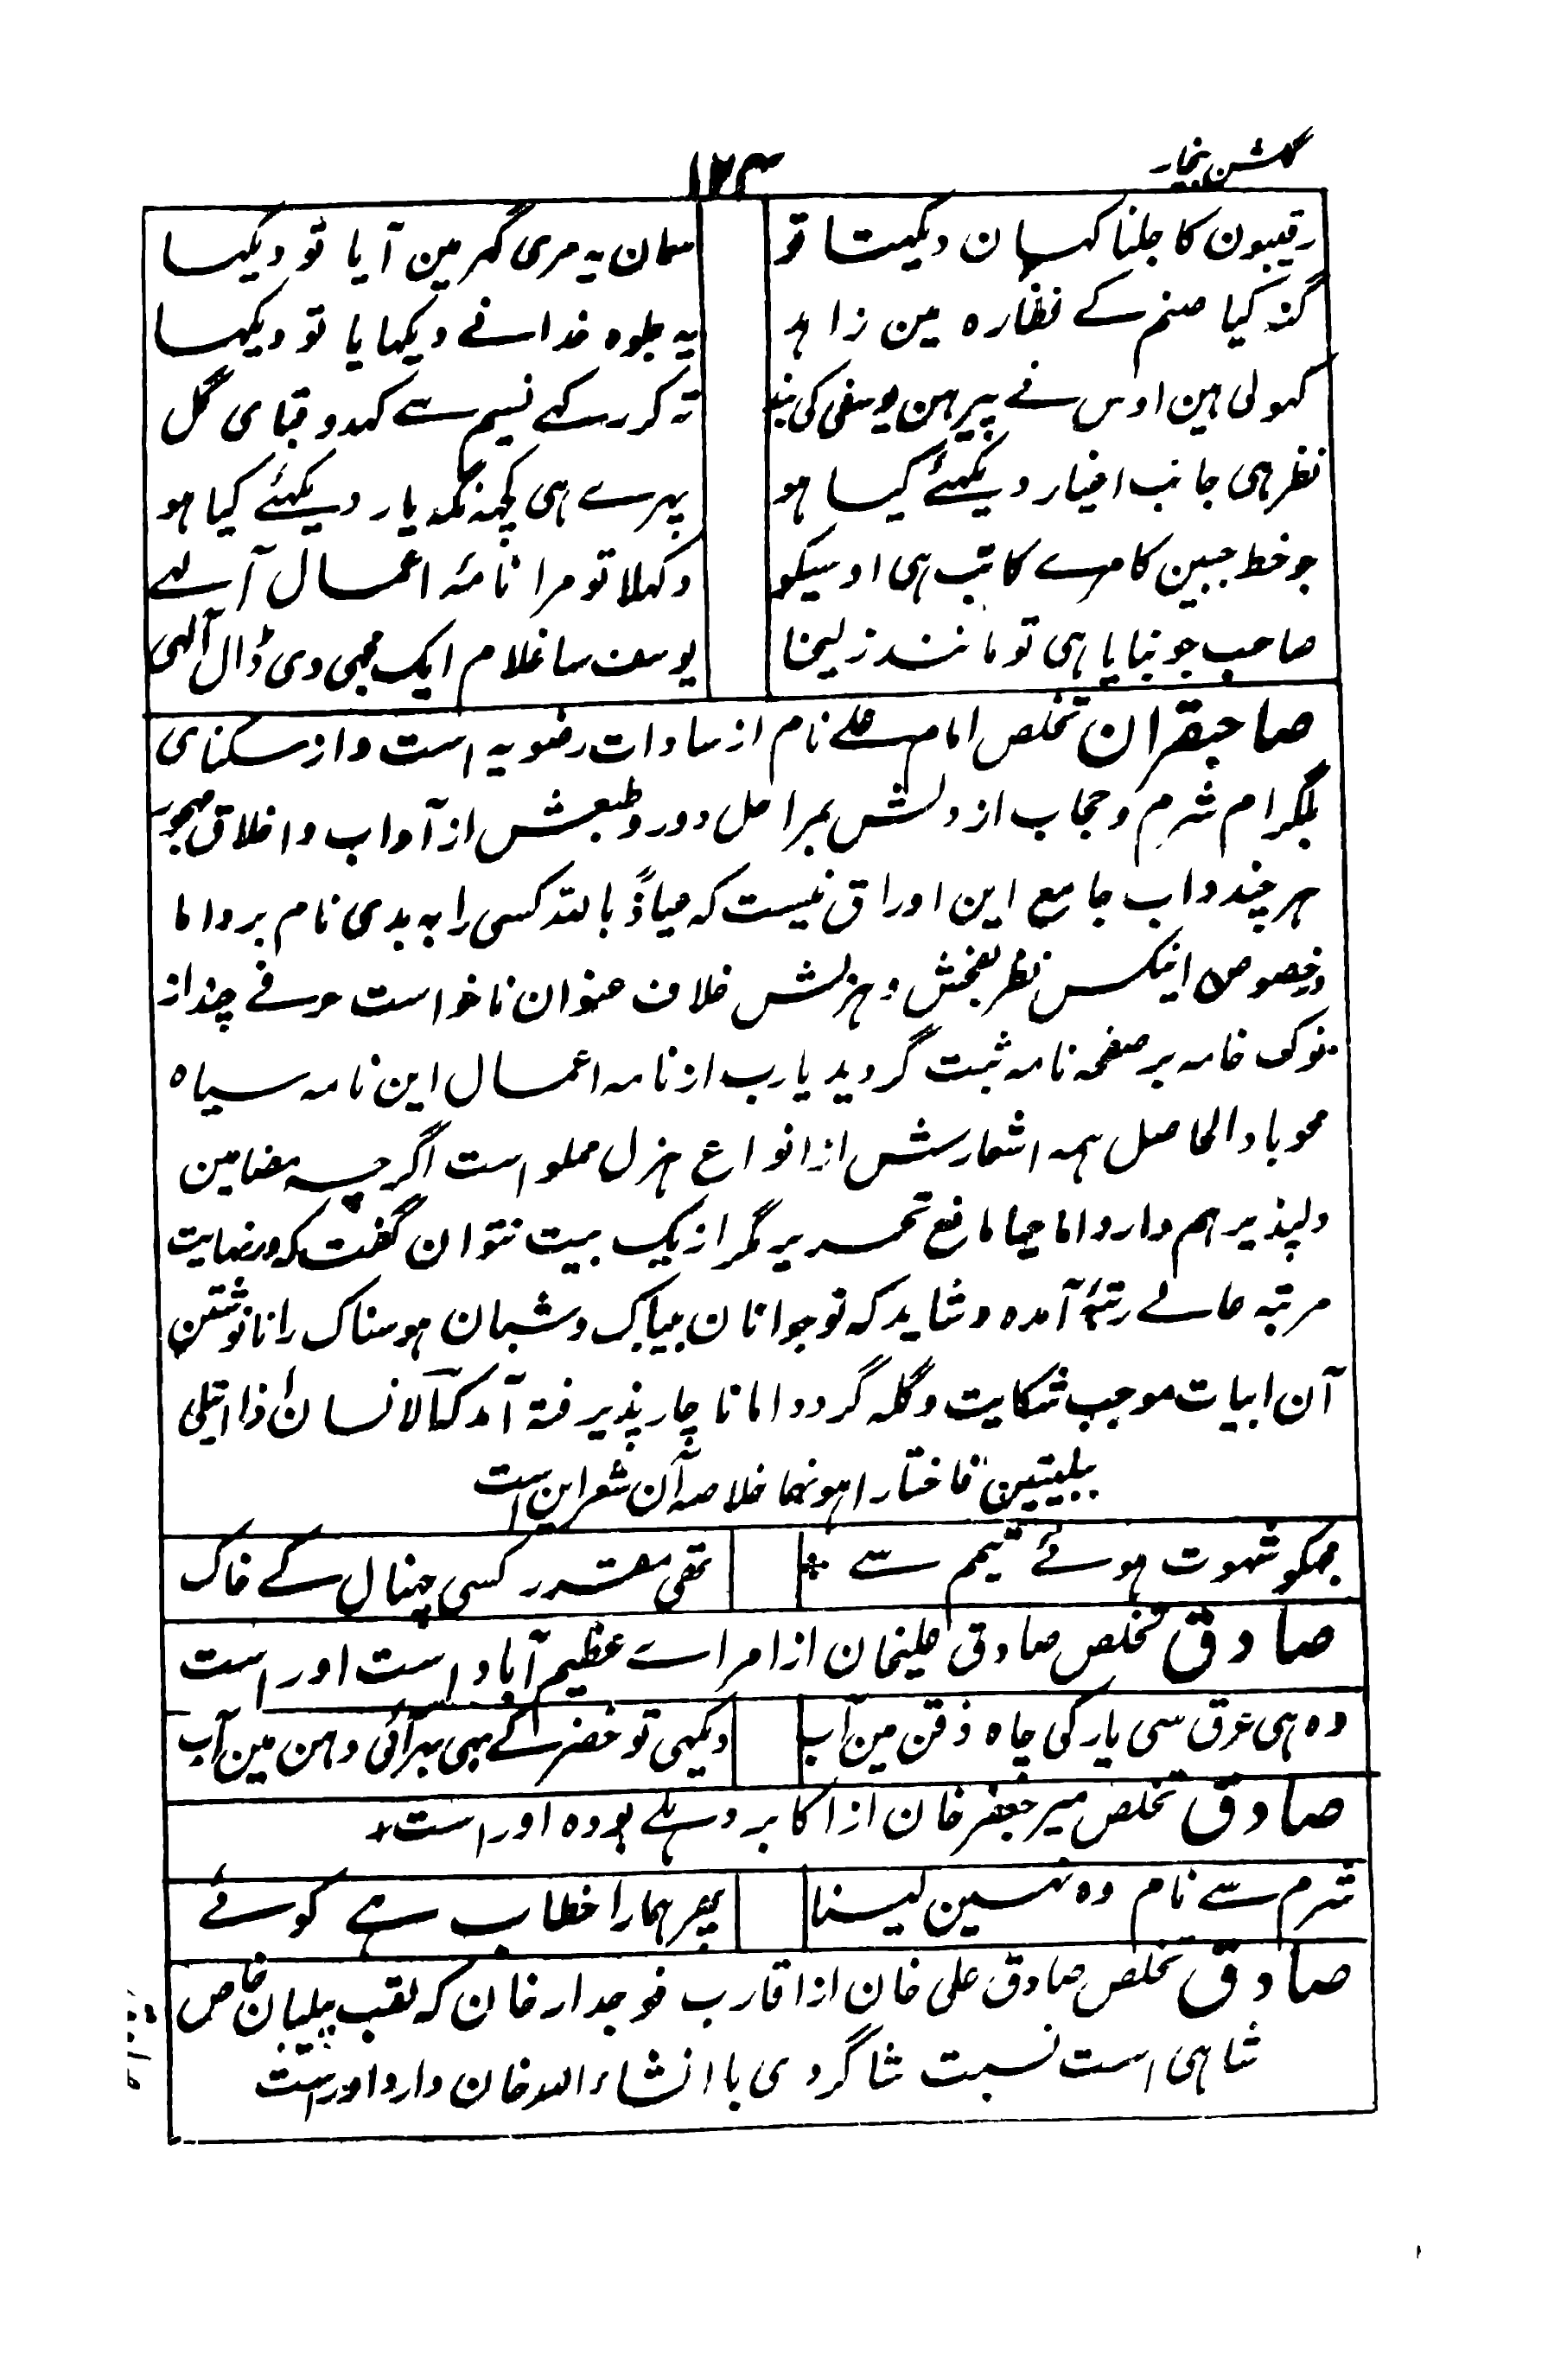 گلشن بیخار
۱۲۴
رقیبون کا جلنا کہان دیکہتا تو سمان یہ مری گہر مین آیا تو دیکہا
گنہ کیا صنم کے نظارہ مین زاہد یہ جلوہ خدا نے دیکہایا تو دیکہا
کہولی ہین اوس نے پیرہن یوسفی کی بند تہ کر رکہے نسیم سے کہدو قبای گل
نظر ہی جانب اغیار دیکہئے کیا ہو پہرے ہی کچہ نگہ یار دیکہئے کیا ہو
جو خط جبین کا مرے کاتب ہی اوسیکو دکہلا تو مرا نامۂ اعمال آلہے
صاحب جو بنایا ہی تو مانند زلیخا یوسف سا غلام ایک مجہی دی ڈال آلہی
صاحبقران تخلص امام علے نام از سادات رضویہ است و از سکنای
بلگرام شرم و حجاب از دلش بمراحل دور و طبعش از آداب و اخلاق مہجور
ہرچند داب جامع این اوراق نیست کہ عیاذً باللہ کسی را بہ بدی نام برد اما
درخصوص اینکس نظر بفحش و ہزلش خلاف عنوان ناخواست حرفے چند از
نوک خامہ بر صفحہ نامہ ثبت گردید یارب از نامہ اعمال این نامہ سیاہ
محو باد الحاصل ہمہ اشعارش از انواع ہزل مملو است اگرچہ مضامین
دلپذیر ہم دارد اما حیا مانع تحریر مگر از یک بیت نتوان گذشت کہ در نہایت
مرتبہ عالے رتبۂ آمدہ و شاید کہ نوجوانان بیباک و شبان ہوسناک را نانوشتن
آن ابیات موجب شکایت و گلہ گردد اما ناچار پذیرفتہ آمد کہ الانسان اذا ابتلی
ببلیتین فاختار اہونہا خلاصہ آن شعر این است
مجکو شہوت ہوئے تیمم سے * تھی مقدر کسی چہنال کے خاک
صادق تخلص صادق علیخان از امراے عظیم آباد است اوراست
وہ ہی عرق سی یار کی چاہ ذقن مین آب دیکہی تو خضر کے بہی بہر آئی دہن مین آب
صادق تخلص میر جعفر خان از اکابر دہلے بودہ اوراست
شرم سے نام وہ نہین لیتا پھر ہمارا خطاب ہے کوئے
صادق تخلص صادق علی خان از اقارب فوجدار خان کہ لقب پیلبان خاص
شاہی است نسبت شاگردی با انشاء اللہ خان دارد اوراست